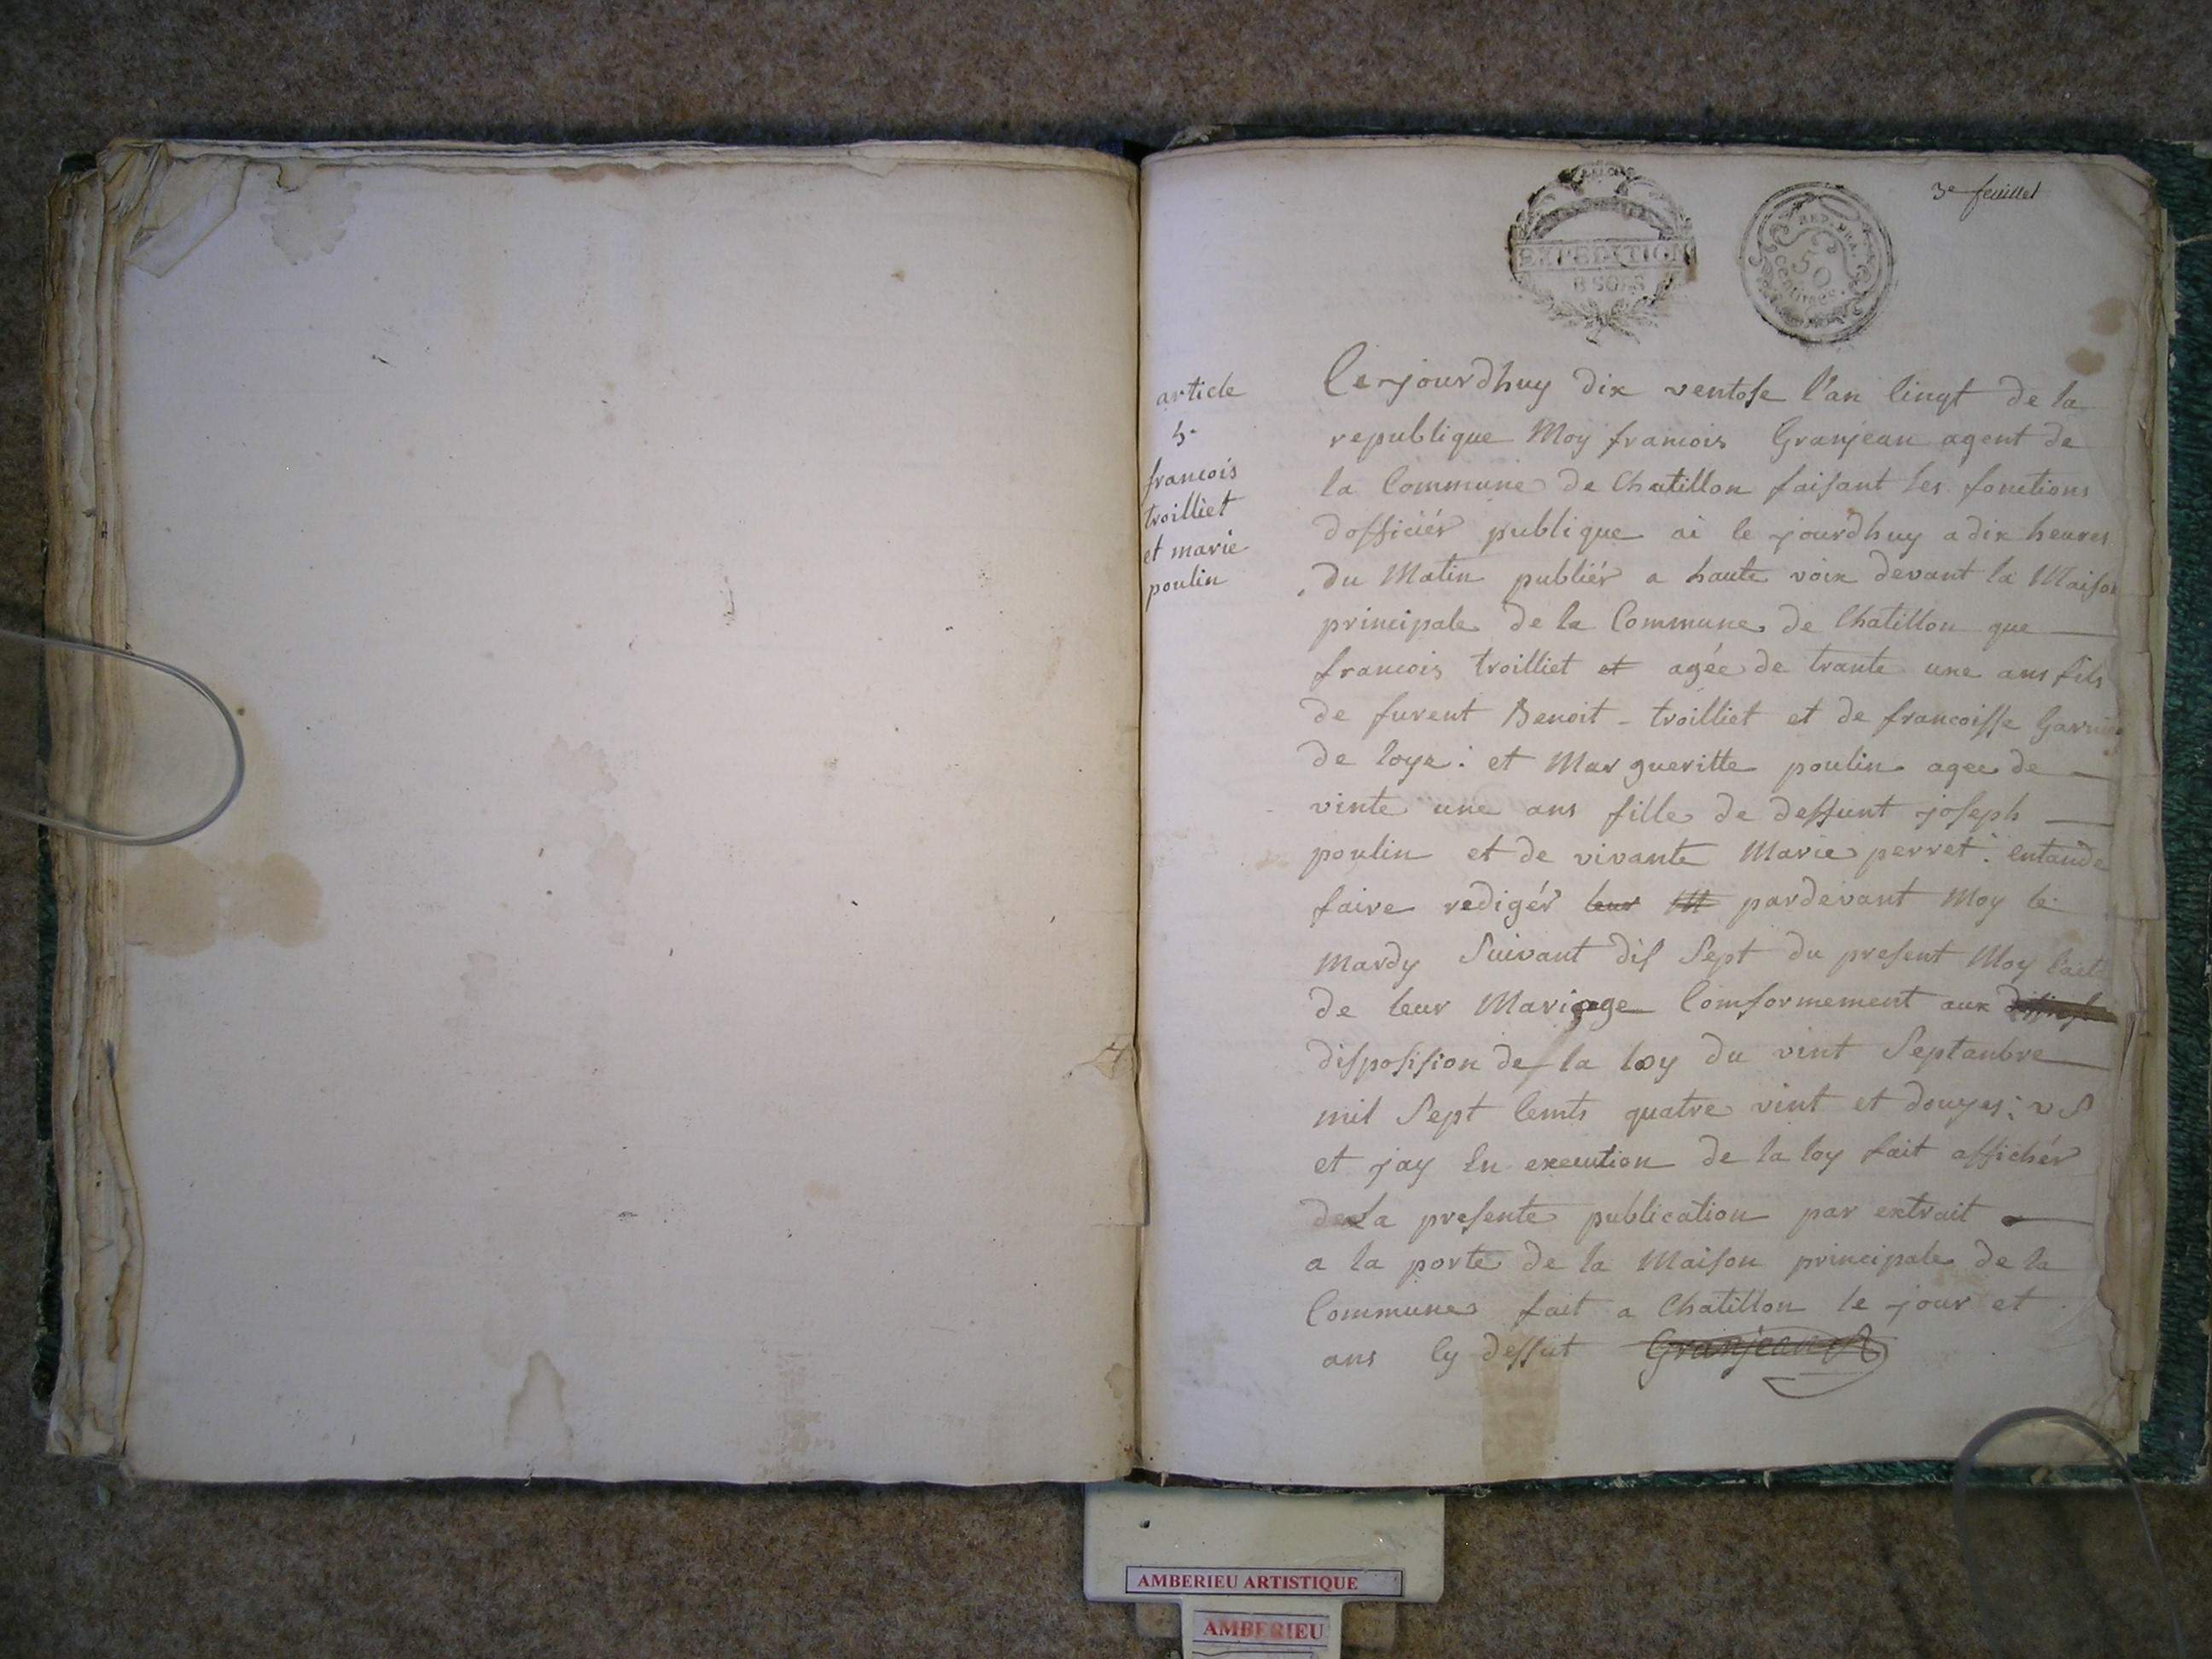 3e feuillet
EXPEDITION
8 SOLS
REP. FRA.
50
centimes
article
francois
troilliet
et marie
poulin
Ce jourdhuy dix ventose l'an cinqt de la
republique Moy francois Granjean agent de
la Commune de Chatillon faisant les fonctions
dofficiér publique ai ce jourdhuy a dix heures
du Matin publiér a haute voix devant la Maison
principale de la Commune de Chatillon que
francois troilliet et agée de trante une ans fils
de furent Benoit troilliet et de francoisse
de loye : et Margueritte poulin agee de
vinte une ans fille de deffunt joseph
poulin et de vivante Marie perret : entande
faire redigér leur M pardevant Moy le
Mardy Suivant dis Sept du present Moy l'act
de leur Mariage Comformement aux
disposision de la loy du vint Septanbre
mil Sept Cents quatre vint et douzes : v S
et jay En execution de la loy fait affichér
de la presente publication par extrait
a la porte de la Maison principale de la
Commune fait a Chatillon le jour et
ans Cy dessut Granjean
AMBERIEU ARTISTIQUE
AMBERIEU